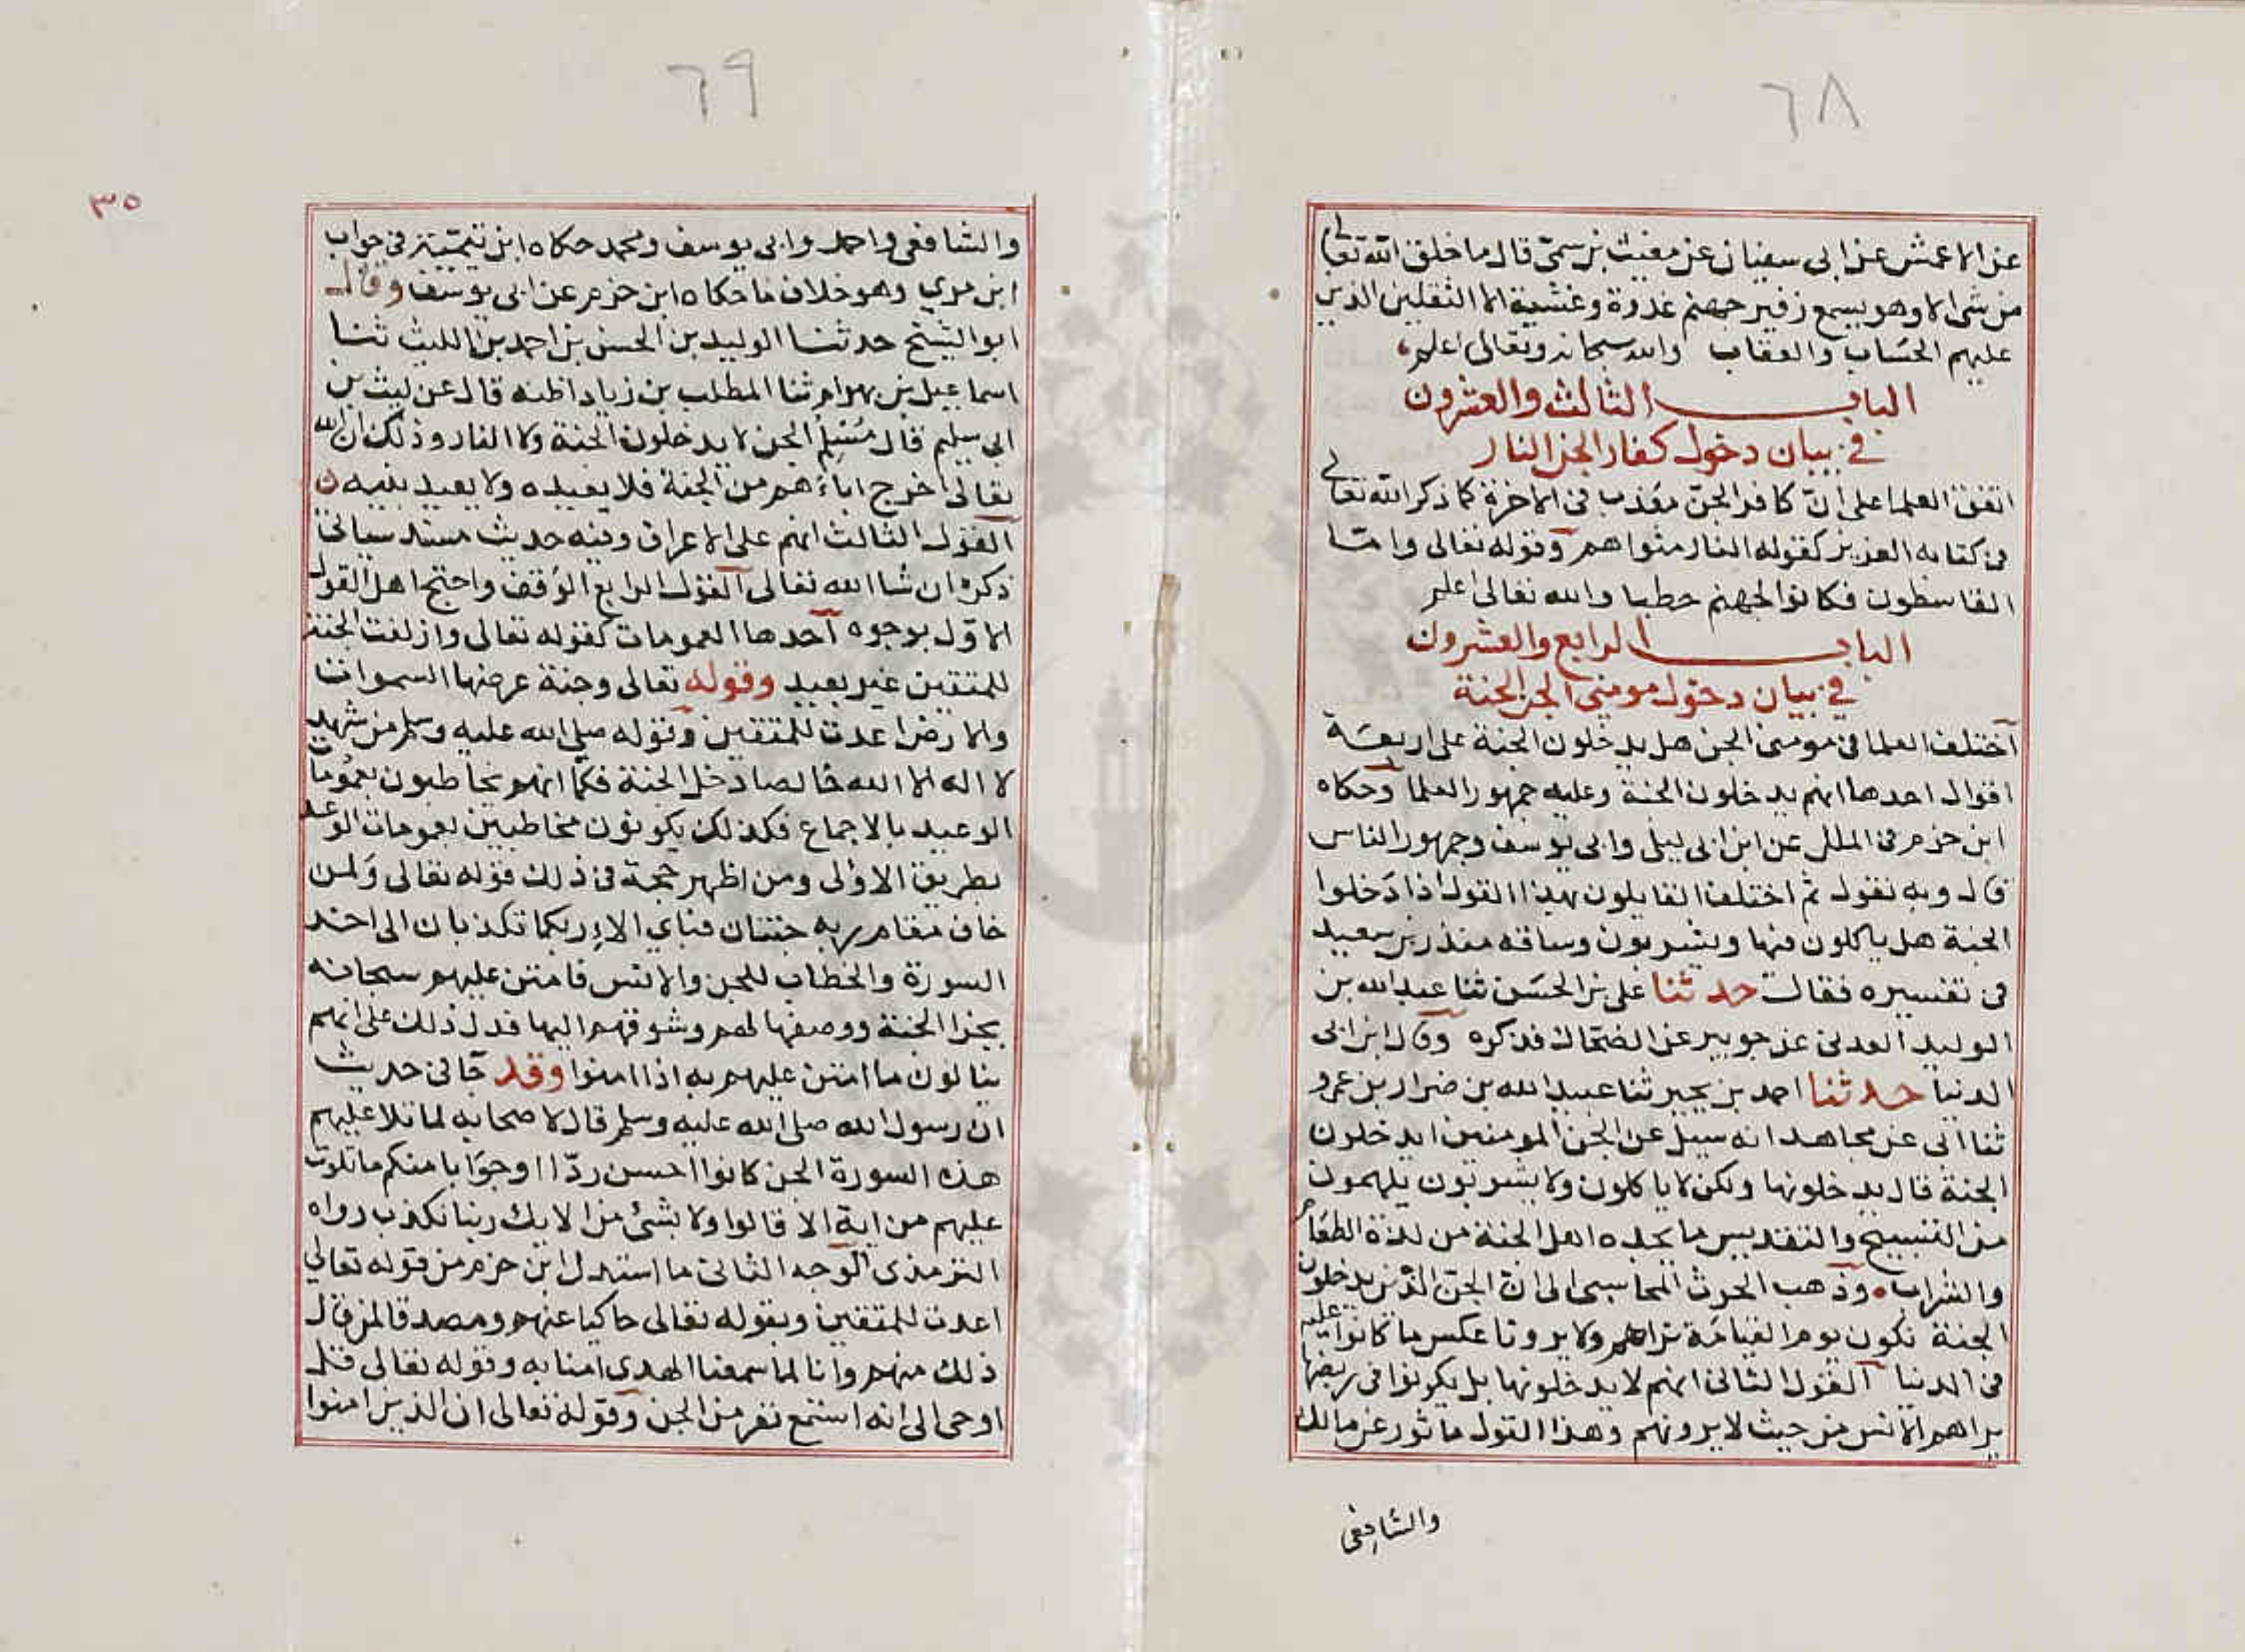 ٦٨
عن الاعمش عن ابى سفيان عن مغيث بن سمى قال ما خلق الله تعالى
من شى الا وهو يسمع زفير جهنم غدوة وعشية الا الثقلين الذين
عليهم الحساب والعقاب والله سبحانه وتعالى اعلم
الباب الثالث والعشرون
في بيان دخول كفار الجن النار
اتفق العلما على ان كافر الجن معذب فى الاخرة كما ذكر الله تعالى
فى كتابه العزيز كقوله النار مثواهم وقوله تعالى واما
القاسطون فكانوا لجهنم حطبا والله تعالى اعلم
الباب الرابع والعشرون
في بيان دخول مومنى الجن الجنة
اختلف العلما فى مومنى الجن هل يدخلون الجنة على اربعة
اقوال احدها انهم يدخلون الجنة وعليه جمهور العلما وحكاه
ابن حزم فى الملل عن ابن ابى ليلى وابى يوسف وجمهور الناس
قال وبه نقول ثم اختلف القايلون بهذا القول اذا دخلوا
الجنة هل ياكلون فيها ويشربون وساقه منذر بن سعيد
فى تفسيره فقال حدثنا على بن الحسن ثنا عبد الله بن
الوليد العدنى عن جويبر عن الضحاك فذكره وقال ابن ابى
الدنيا حدثنا احمد بن بجير ثنا عبيد الله بن ضرار بن عمرو
ثنا ابى عن مجاهد انه سيل عن الجن المومنين ايدخلون
الجنة قال يدخلونها ولكن لا ياكلون ولا يشربون يلهمون
من التسبيح والتقديس ما يجده اهل الجنة من لذة الطعام
والشراب وذهب الحرث المحاسبى الى ان الجن الذين يدخلون
الجنة نكون يوم القيامة نراهم ولا يرونا عكس ما كانوا عليه
فى الدنيا القول الثانى انهم لا يدخلونها بل يكونوا فى ربضها
يراهم الانس من حيث لا يرونهم وهذا القول ماثور عن مالك
والشافعى
٦٩
٣٥
والشافعى واحمد وابى يوسف ومحمد حكاه ابن تيمية فى جواب
ابن مري وهو خلاف ما حكاه ابن حزم عن ابى يوسف وقال
ابو الشيخ حدثنا الوليد بن الحسن بن احمد بن الليث ثنا
اسماعيل بن بهرام ثنا المطلب بن زياد اظنه قال عن ليث بن
ابى سليم قال مسلم الجن لا يدخلون الجنة ولا النار وذلك ان الله
تعالى اخرج اباءهم من الجنة فلا يعيده ولا يعيد بنيه
القول الثالث انهم على الاعراف وفيه حديث مسند سياتى
ذكره ان شا الله تعالى القول الرابع الوقف واحتج اهل القول
الاول بوجوه احدها العمومات كقوله تعالى وازلفت الجنة
للمتقين غير بعيد وقوله تعالى وجنة عرضها السموات
والارض اعدت للمتقين وقوله صلى الله عليه وسلم من شهد
لا اله الا الله خالصا دخل الجنة فكما انهم يخاطبون بعمومات
الوعيد بالاجماع فكذلك يكونون مخاطبين بعمومات الوعد
بطريق الاولى ومن اظهر حجة فى ذلك قوله تعالى ولمن
خاف مقام ربه جنتان فباي الاء ربكما تكذبان الى اخر
السورة والخطاب للجن والانس فامتن عليهم سبحانه
بجزا الجنة ووصفها لهم وشوقهم اليها فدل ذلك على انهم
ينالون ما امتن عليهم به اذا امنوا وقد جا فى حديث
ان رسول الله صلى الله عليه وسلم قال لاصحابه لما تلا عليهم
هذه السورة الجن كانوا احسن ردا وجوابا منكم ما تلوت
عليهم من اية الا قالوا ولا بشئ من الايك ربنا نكذب رواه
الترمذى الوجه الثانى ما استدل ابن حزم من قوله تعالي
اعدت للمتقين وبقوله تعالى حاكيا عنهم ومصدقا لمن قال
ذلك منهم وانا لما سمعنا الهدى امنا به وقوله تعالى قل
اوحى الى انه استمع نفر من الجن وقوله تعالى ان الذين امنوا